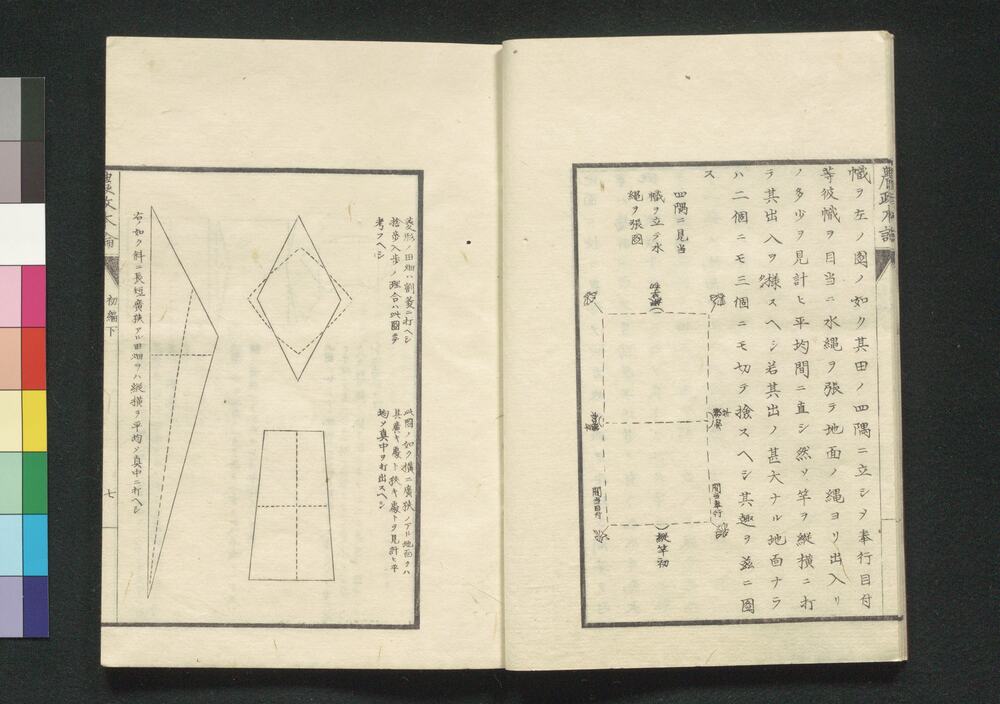 幟ヲ左ノ圖ノ如ク其田ノ四隅ニ立シヲ奉行目付
等彼幟ヲ目当ニ水繩ヲ張ラ地面ノ繩ヨリ出入リ
ノ多少ヲ見計ヒ平均間ニ直シ然ソ竿ヲ縦横ニ打
ラ其出入ヲ様スヘシ若其出ノ甚大ナル地面ナラ
ハ二個ニモ三個ニモ切テ撿スヘシ其趣ヲ茲ニ圖
ス
四隅ニ見当
幟ヲ立テ水
繩ヲ張圖
間当奉行
間当目付
縦竿初
菱形ノ田畑ハ割菱ニ打ヘシ
捨歩入歩ノ理合ハ此圖夛
考フヘシ
此圖ノ如ク横ニ廣狭ノアル地面ヲハ
其廣キ處ト狭キ處トヲ見計ヒ平
均ソ真中ヲ打出スヘシ
右ノ如ク斜ニ長短廣狭アル田畑ヲハ縦横ヲ平均ソ真中ニ打ヘシ
初編下
七